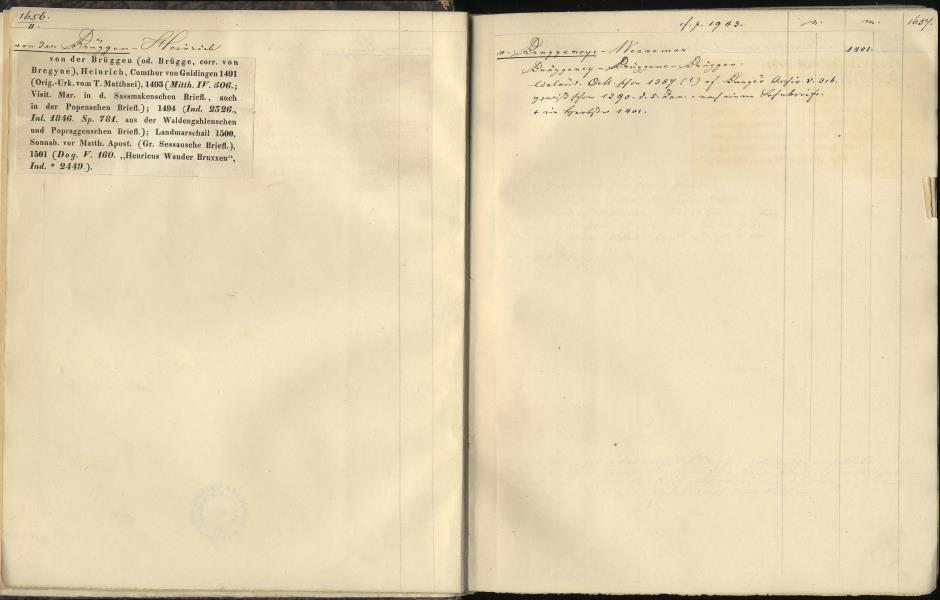 1656.
II.
von der Brüggen - Heinrich
von der Brüggen (od. Brügge, corr. von
Bregyne), Heinrich, Comthur von Goldingen 1491
(Orig.-Urk. vom T. Matthaei), 1493 (Mitth. IV. 506.;
Visit. Mar. in d. Sassmakenschen Briefl., auch
in der Popenschen Briefl.); 1494 (Ind. 2526.,
Inl. 1846. Sp. 781. aus der Waldengahlenschen
und Popraggenschen Briefl.); Landmarschall 1500,
Sonnab. vor Matth. Apost. (Gr. Sessausche Briefl.),
1501 (Dog. V. 160. „Henricus Wander Bruxxen“,
Ind. * 2449.).
cf. p. 1943. v. m. 1657.
v. Bruggenoye - Wennemar 1401.
Brüggeney - Brüggene - Brüggen.
livländ. O.M. schon 1389 (?) cf. Bunge's Archiv. V.
schon 1390. d. 5. Jan.
† im Herbste 1401.